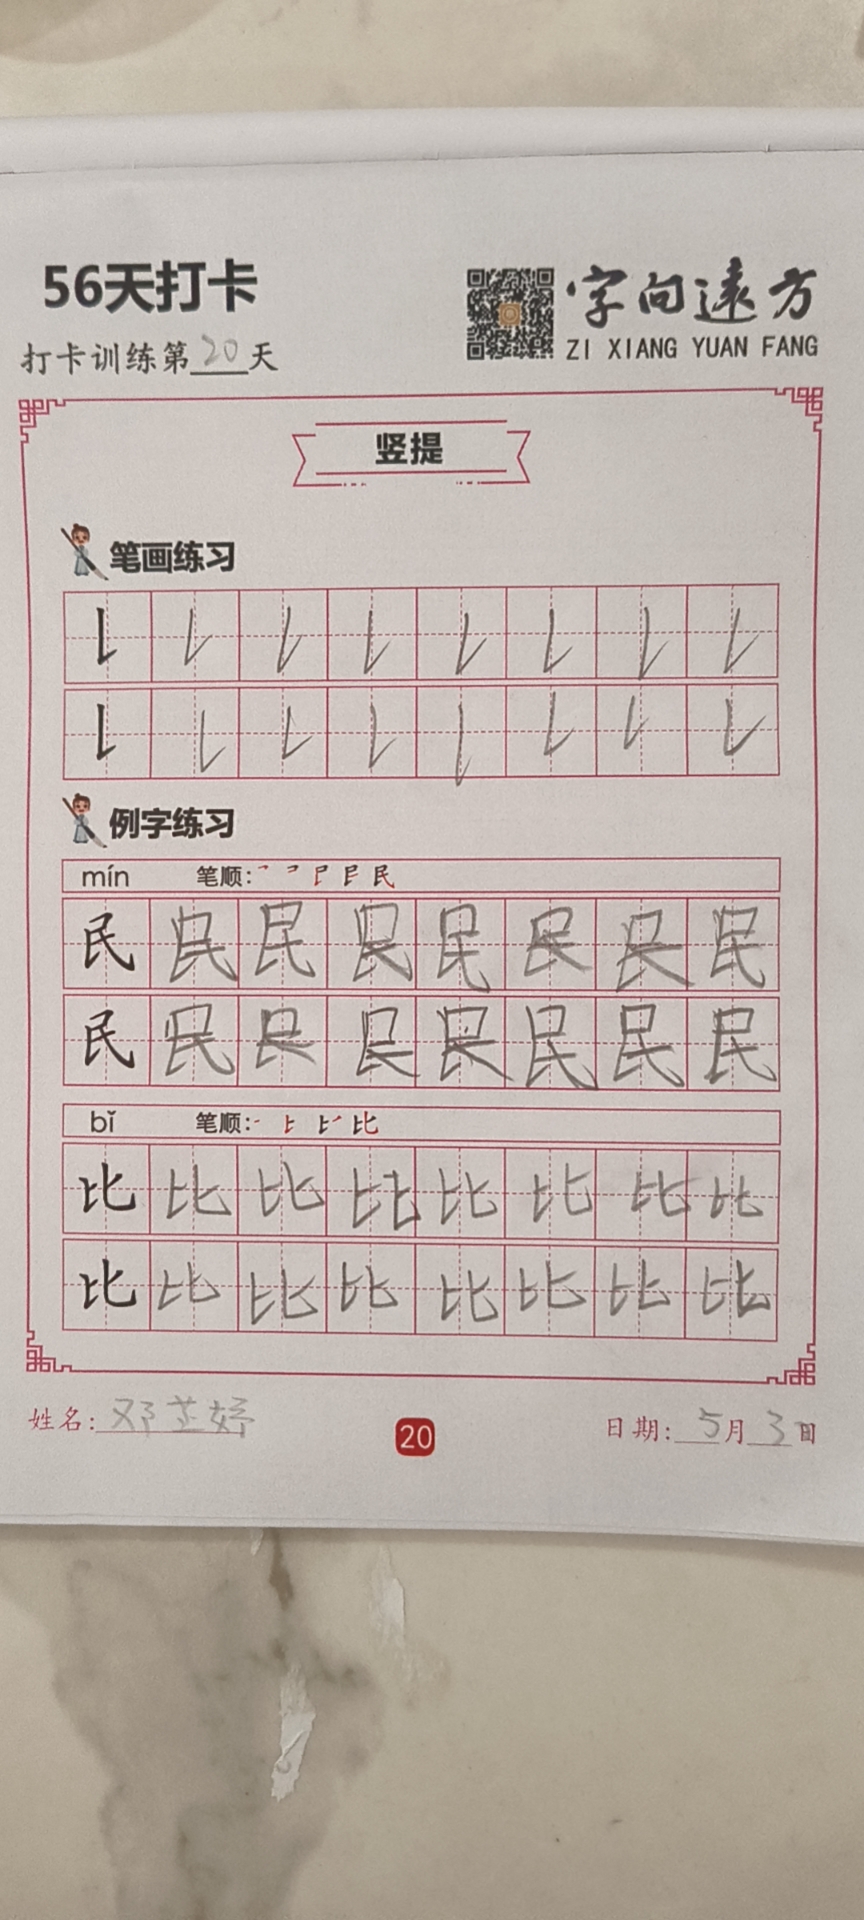 56天打卡
字向遠方
ZI XIANG YUAN FANG
打卡训练第20天
竖提
笔画练习
例字练习
mín 笔顺:
民 民 民 民 民 民 民 民
民 民 民 民 民 民 民 民
bǐ 笔顺:
比 比 比 比 比 比 比 比
比 比 比 比 比 比 比 比
姓名:邓芷妤
20
日期:5月3日